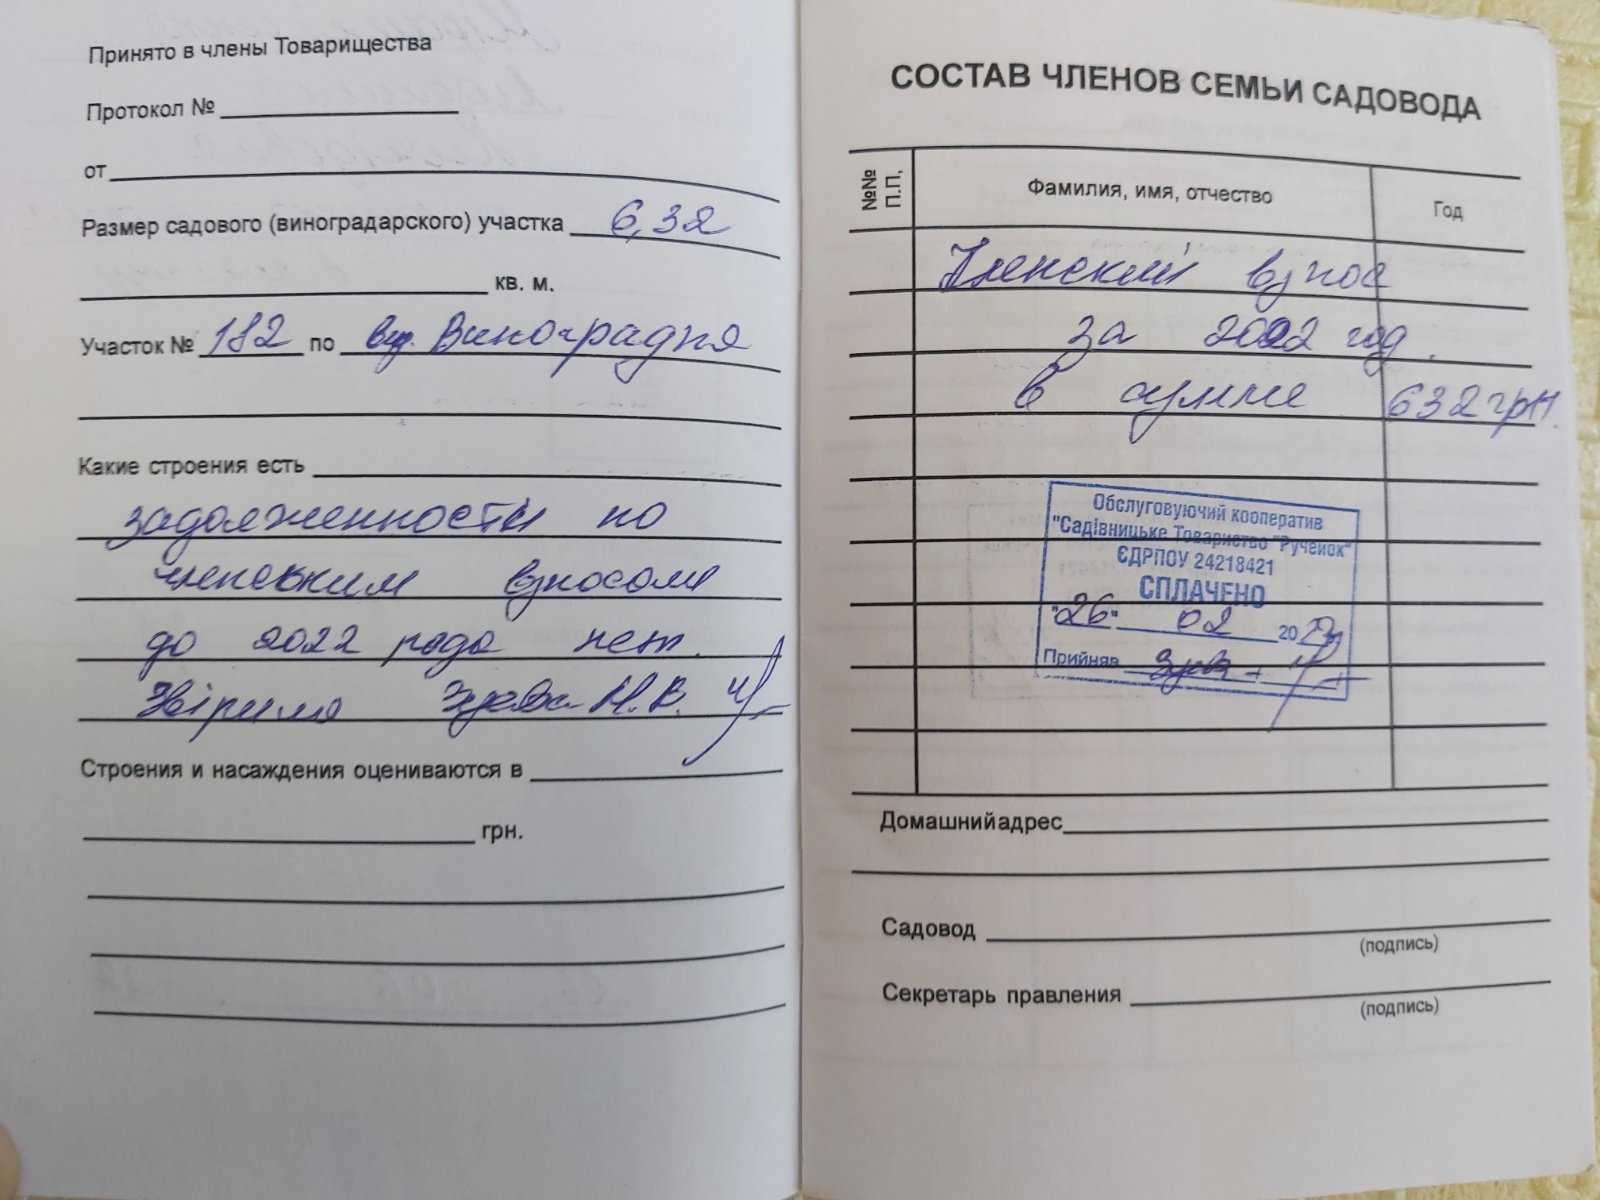 Принято в члены Товарищества
Протокол №
от
Размер садового (виноградарского) участка 6,32
кв. м.
Участок № 182 по вул. Виноградня
Какие строения есть
задолженности по
членским взносам
до 2022 года нет.
Звірила Н.В.
Строения и насаждения оцениваются в
грн.
СОСТАВ ЧЛЕНОВ СЕМЬИ САДОВОДА
№№ П.П,
Фамилия, имя, отчество
Год
Членский взнос
за 2022 год.
в сумме 632грн.
Обслуговуючий кооператив
"Садівницьке Товариство "Ручейок"
ЄДРПОУ 24218421
СПЛАЧЕНО
"26" 02 20
Прийняв
Домашнийадрес
Садовод
(подпись)
Секретарь правления
(подпись)